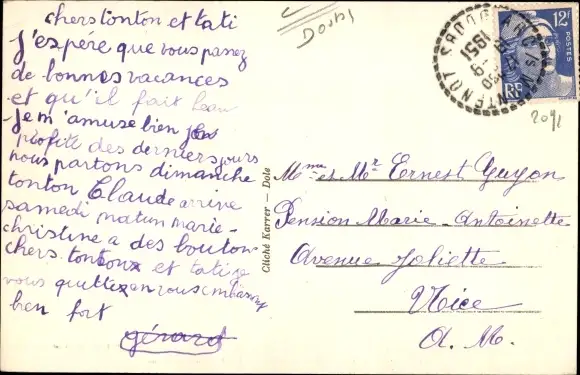 chers tonton et tati
j'espére que vous passez
de bonnes vacances
et qu'il fait beau
je m'amuse bien je
profite des derniers jours
nous partons dimanche
tonton Claude arrive
samedi matin marie-
christine a des boutons
chers tontoux et tati je
vous quittes en vous embrassant
bien fort
gérard
Doubs
1951
DOUBS
12F
POSTES
RF
2091
Mme et Mr Ernest Guyon
Pension Marie-Antoinette
Avenue Joliette
Nice
A. M.
Cliché Karrer — Dole